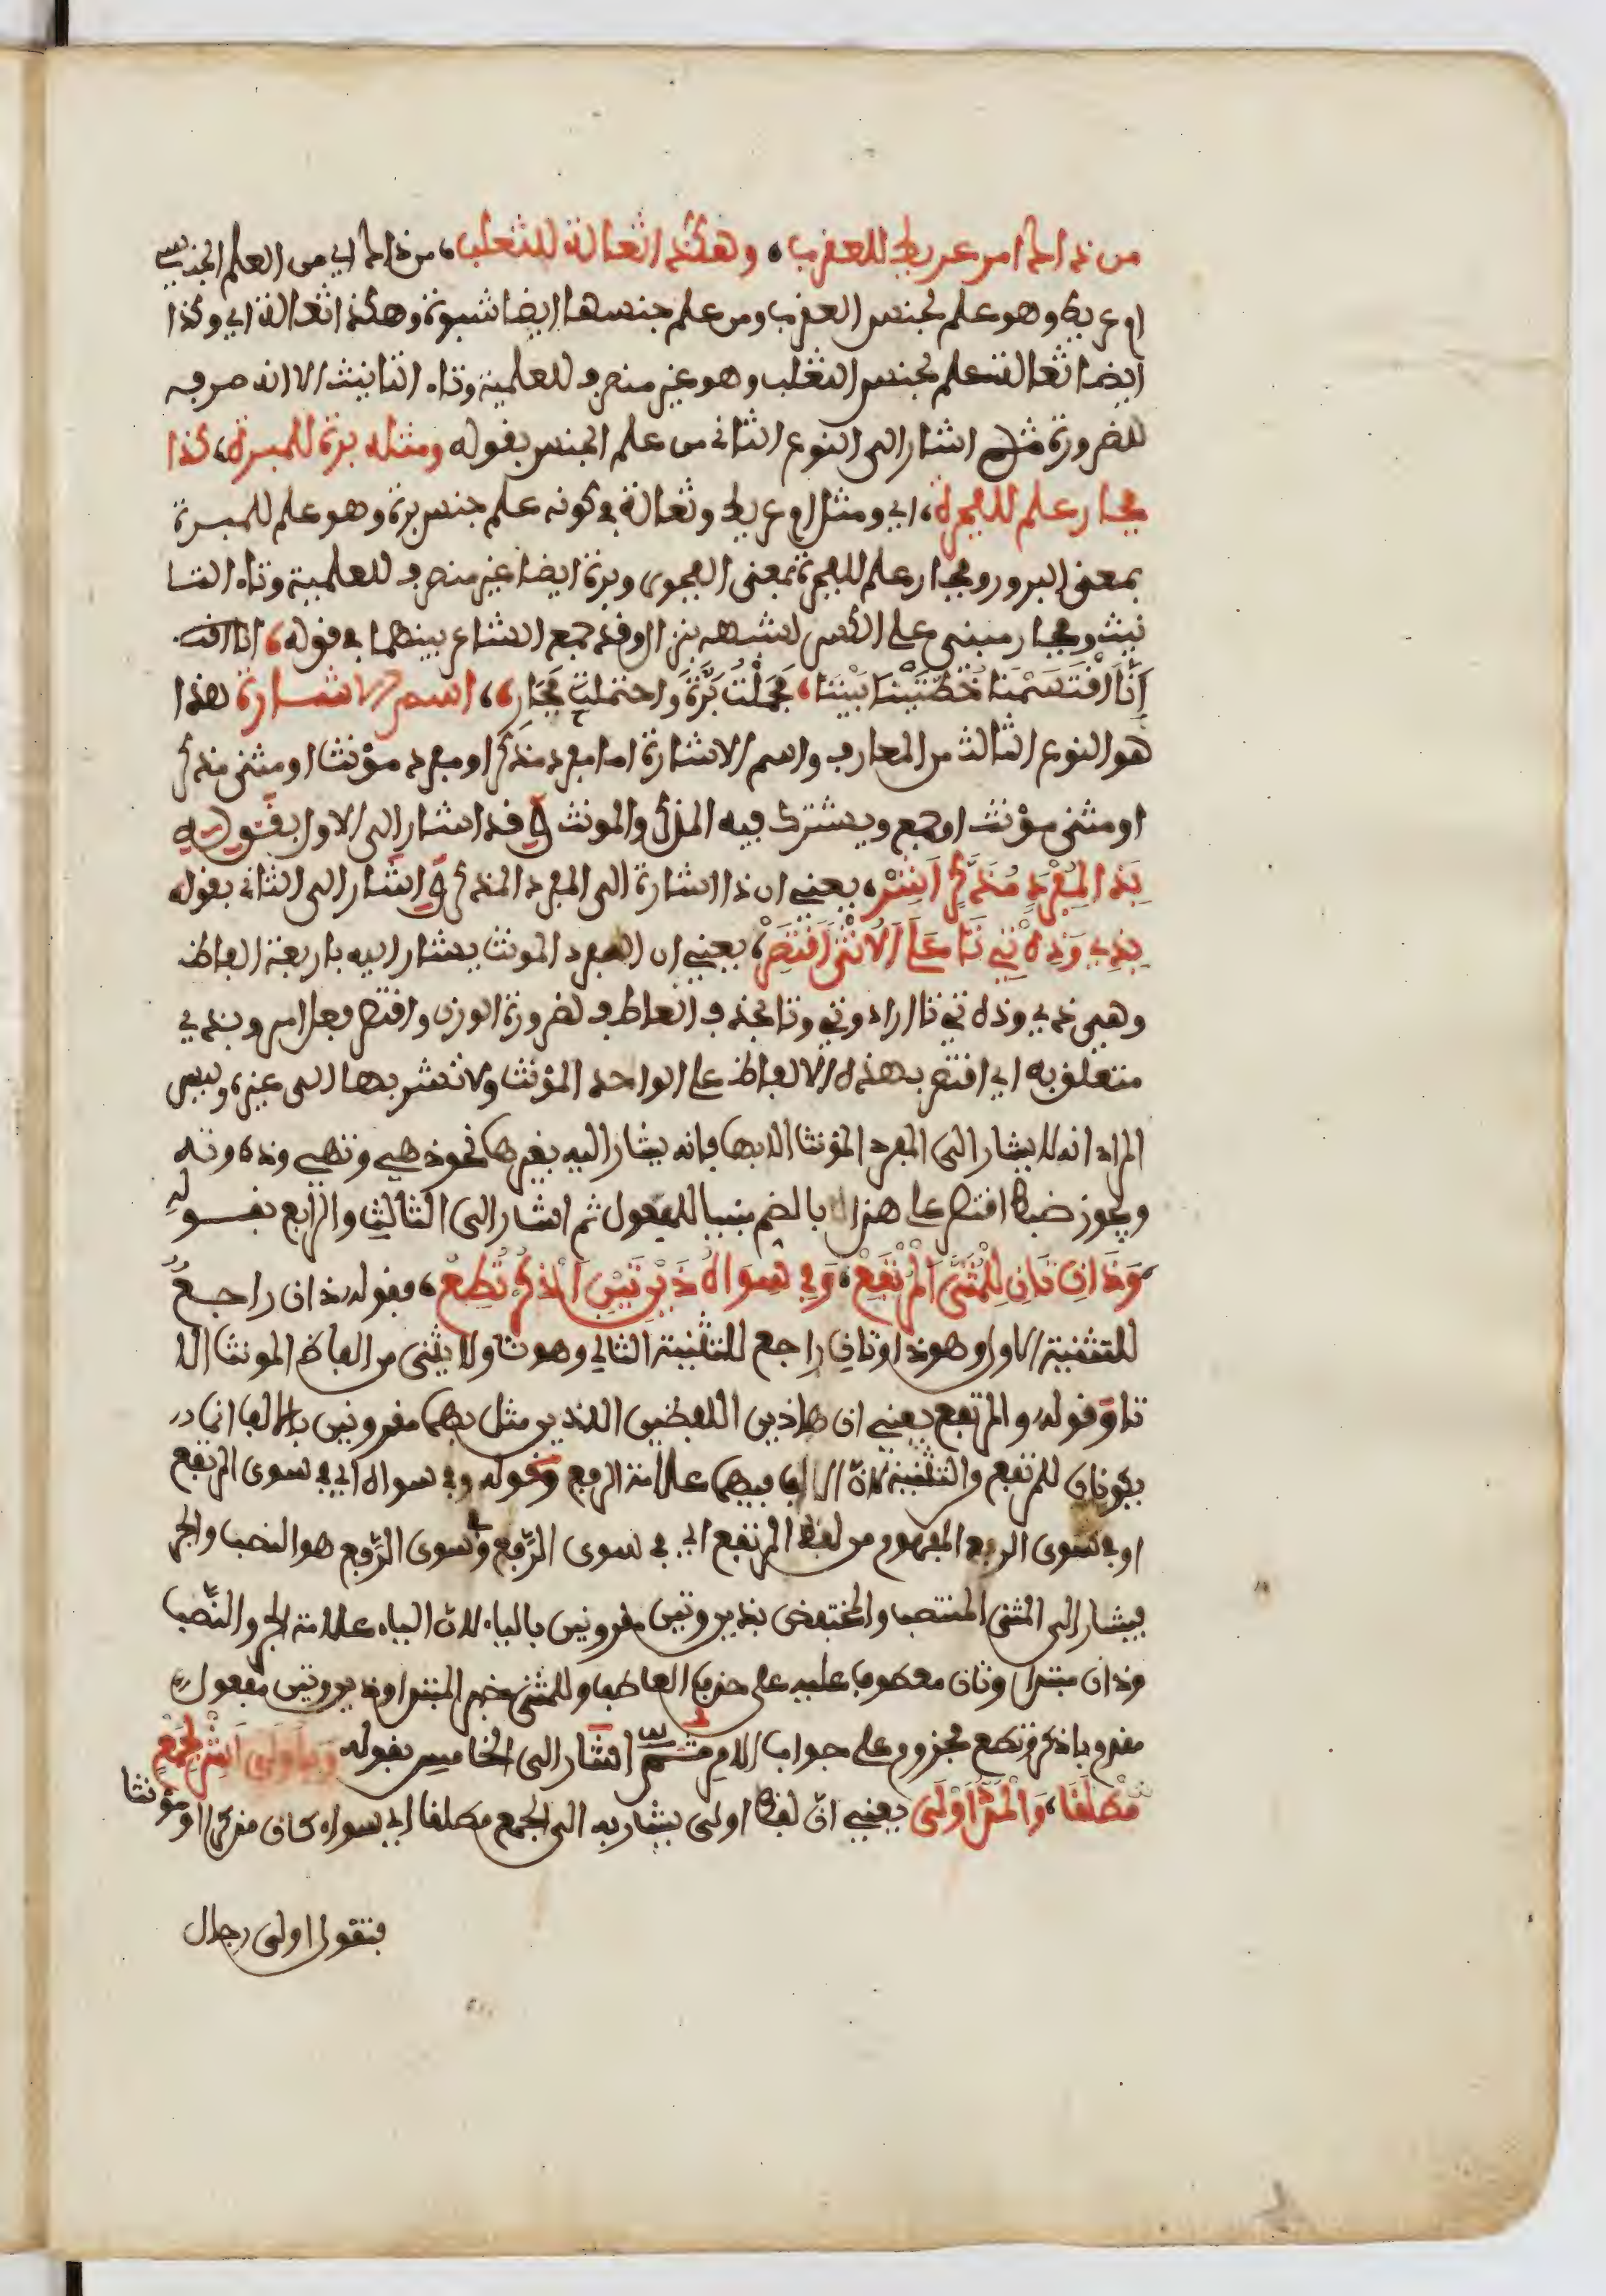 من ذاك ام عريط للعقرب، وهكذا ثعالة للثعلب، من ذاك اي من العلم الجنسي
ام عريط وهو علم لجنس العقرب ومن علم جنسها ايضا شبوة وهكذا ثعالة اي وكذا
ايضا ثعالة علم لجنس الثعلب وهو غير منصرف للعلمية وتاء التانيث الا انه صرفه
للضرورة ثم اشار الى النوع الثاني من علم الجنس بقوله ومثله برة للمبرة، كذا
فجار علم للفجرة، اي ومثل ام عريط وثعالة في كونه علم جنس برة وهو علم للمبرة
بمعنى البرور وفجار علم للفجرة بمعنى الفجور وبرة ايضا غير منصرف للعلمية وتاء التا
نيث وفجار مبني على الكسر لشبهه بنزال وقد جمع الشاعر بينهما في قوله، انا اقت
إنا اقْتَسَمْنا خُطَّتَيْنا بَيْنَنا، فحملتُ بَرَّةَ واحتملتَ فَجَارِ، اسم الاشارة هذا
هو النوع الثالث من المعارف واسم الاشارة اما مفرد مذكر او مفرد مؤنث او مثنى مذكر
او مثنى مؤنث او جمع ويشترك فيه المذكر والمونث وقد اشار الى الاول بقوله
بِذَا لِمُفْرَدٍ مُذَكَّرٍ اَشِرْ، يعني ان ذا اشارة الى المفرد المذكر واشار الى الثاني بقوله
بِذِي وَذِهْ تِي تَا عَلَى الاُنْثَى اقْتَصِرْ، يعني ان المفرد المونث يشار اليه باربعة الفاظ
وهي ذي وذه تي تا اراد وتي وتا فحذف العاطف لضرورة الوزن واقتصر فعل امر وبذي
متعلق به اي اقتصر بهذه الالفاظ على الواحد المؤنث ولا تشر بها الى غيره وليس
المراد انه لا يشار الى المفرد المؤنث الا بها فانه يشار اليه بغيرها نحو ذهي وتهي وذه وته
ويجوز ضبط اقتصر على هذا بالضم مبنيا للمفعول ثم اشار الى الثالث والرابع بقوله
وَذَانِ تَانِ لِلْمُثَنَّى المُرْتَفِعْ، وَفِي سِوَاهُ ذَيْنِ تَيْنِ اذْكُرْ تُطِعْ، فقوله ذان راجع
للتثنية الاول وهو ذا وتان راجع للتثنية الثاني وهو تا ولا يثنى من الفاظ المونث الا
تا وقوله والمرتفع يعني ان هاذين اللفظين اللذين مثل بهما مقرونين بالالف انما
يكونان للمرتفع والتثنية لان الالف فيهما علامة الرفع وقوله وفي سواه اي في سوى المرتفع
او في سوى الرفع المفهوم من لفظ المرتفع اي في سوى الرَّفع وسوى الرَّفع هو النصب والجر
فيشار الى المثنى المنتصب والمختفض بذين وتين مقرونين بالياء لان الياء علامة الجر والنّصب
وذان مبتدا وتان معطوف عليه على حذف العاطف وللمثنى خبر المبتدا وذين وتين مفعول
مقدم باذكر وتطع مجزوم على جواب الامر ثم اشار الى الخامس بقوله وَبِاُولَى اَشِرْ لِجَمْعٍ
مُطْلَقَا، وَالمَدُّ اَوْلَى يعني انّ لفظ اولى يشار به الى الجمع مطلقا اي سواء كان مذكرا او مؤنثا
فتقول اولى رجال